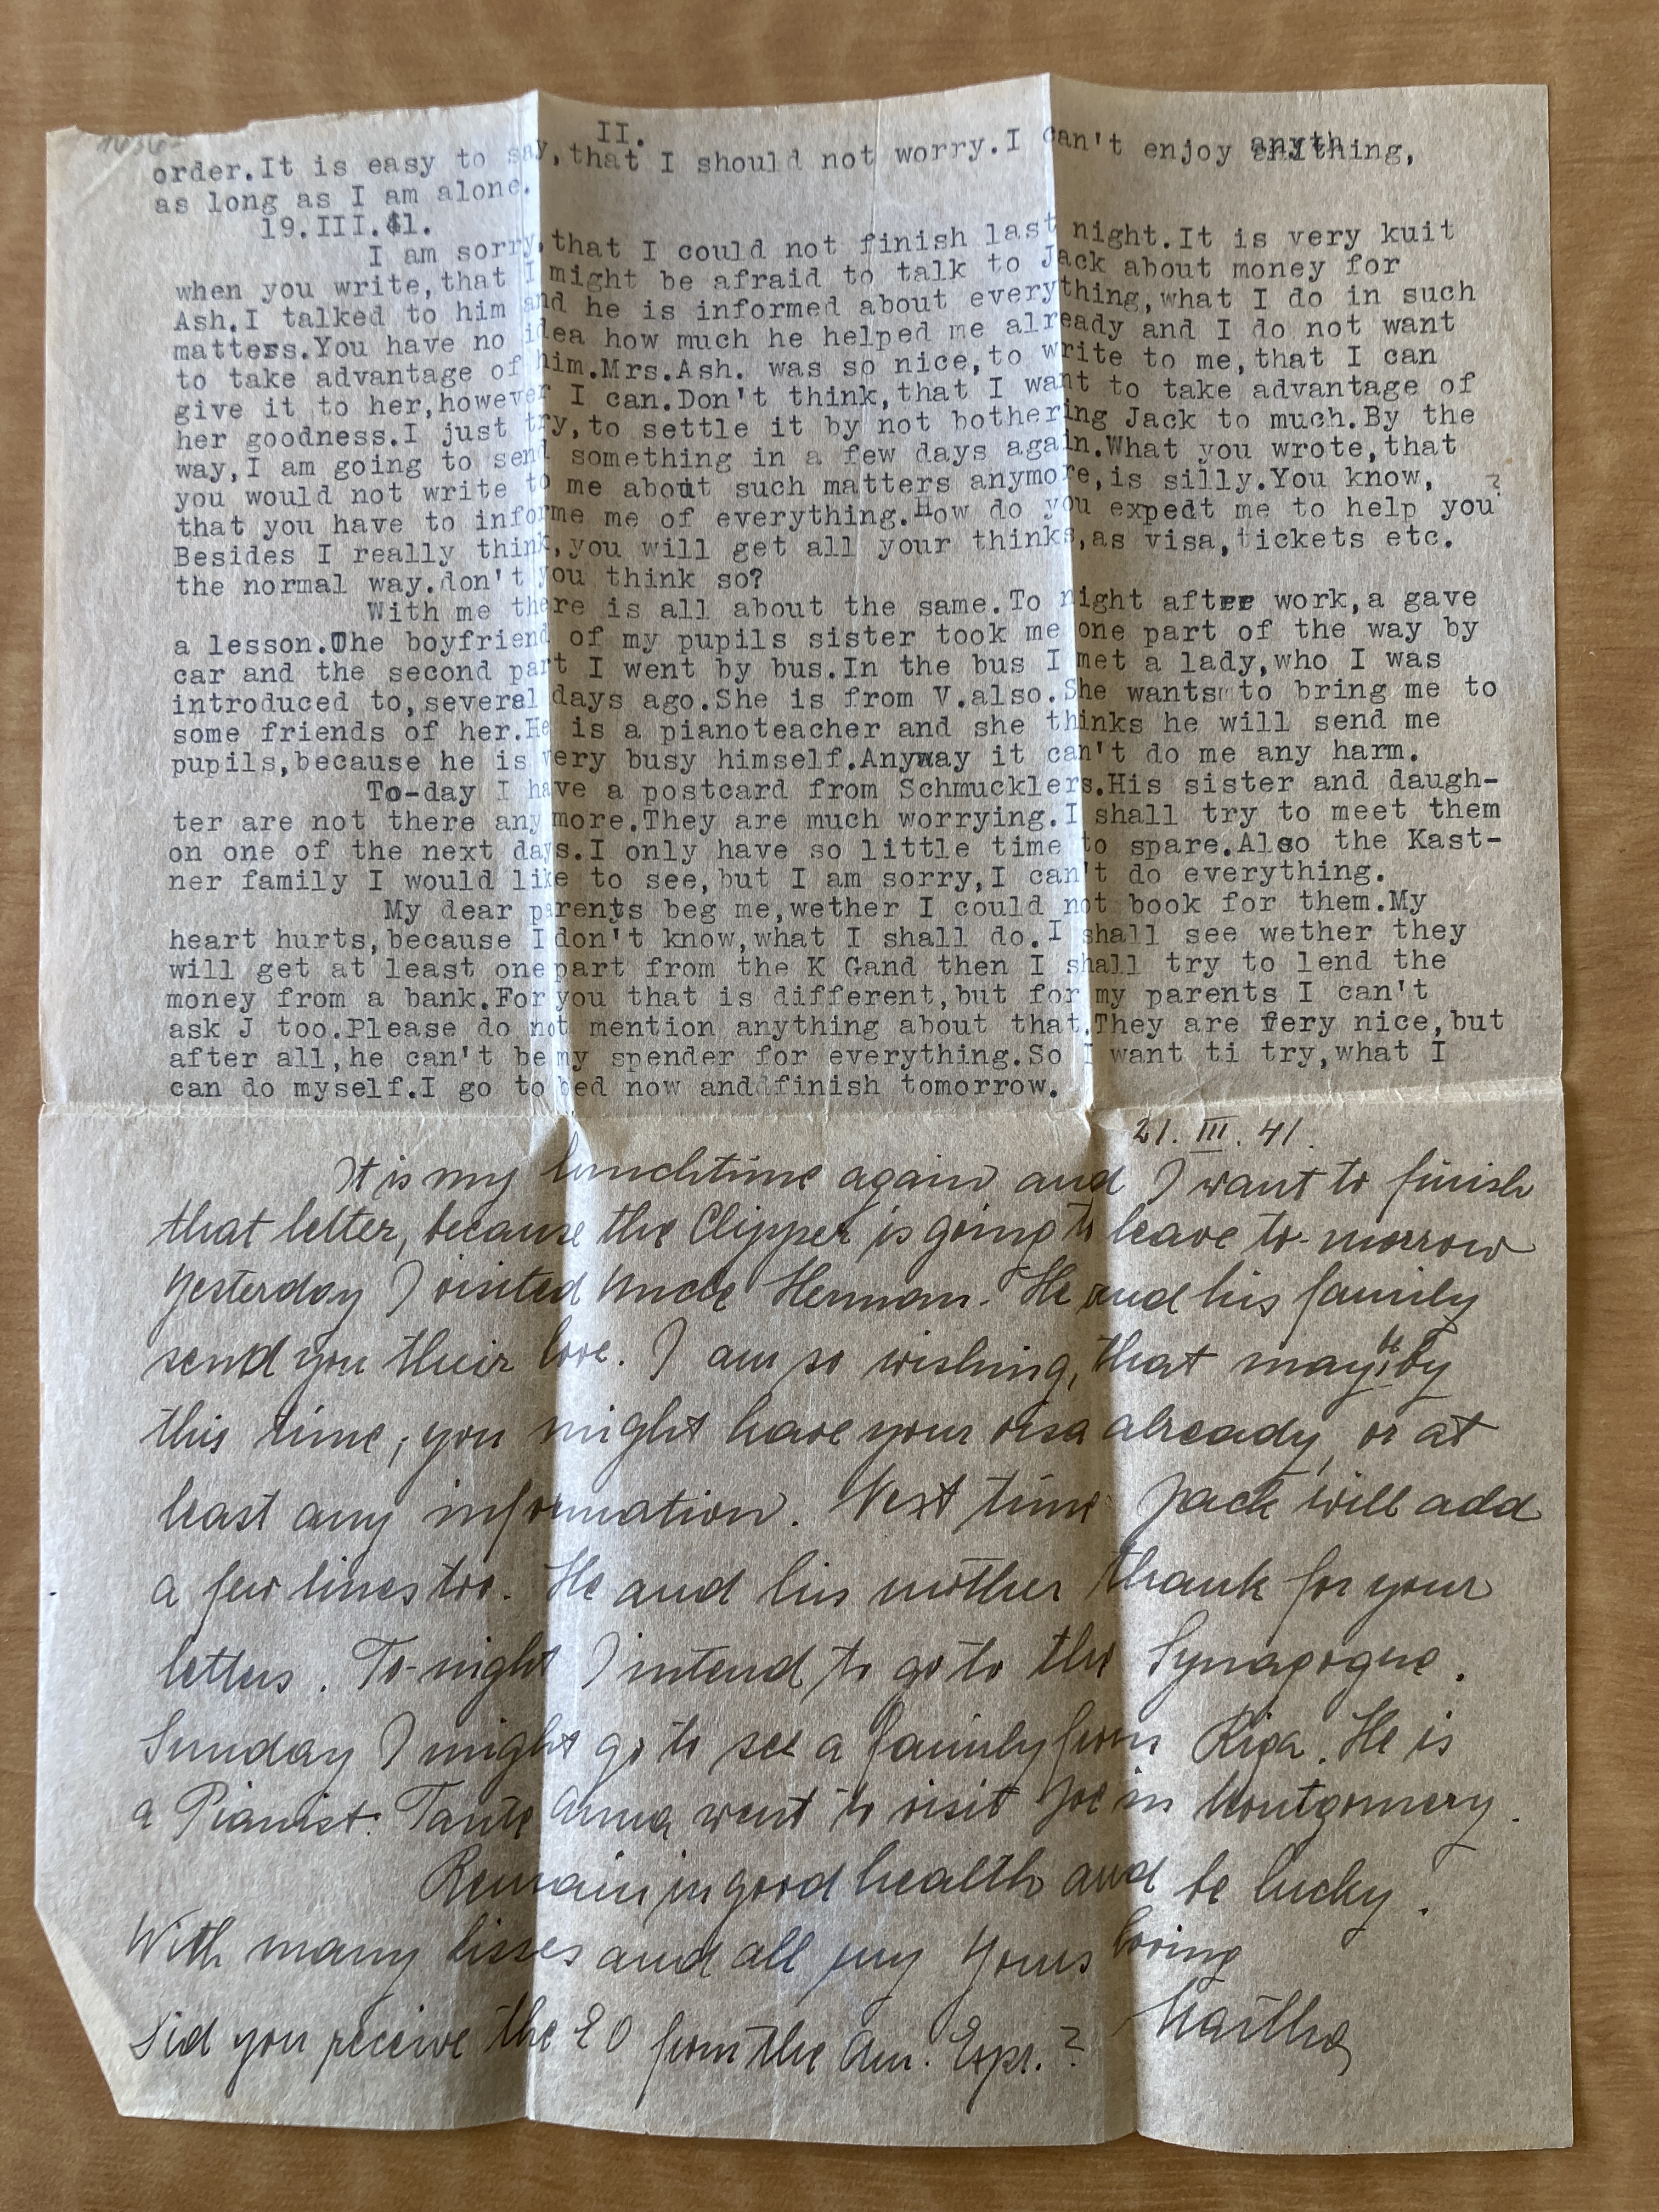 II.
order.It is easy to say,that I should not worry.I can't enjoy anything,
as long as I am alone.
19.III.41.
I am sorry,that I could not finish last night.It is very kuit
when you write,that I might be afraid to talk to Jack about money for
Ash.I talked to him and he is informed about everything,what I do in such
matters.You have no idea how much he helped me already and I do not want
to take advantage of him.Mrs.Ash. was so nice,to write to me,that I can
give it to her,however I can.Don't think,that I want to take advantage of
her goodness.I just try,to settle it by not bothering Jack to much.By the
way,I am going to send something in a few days again.What you wrote,that
you would not write to me about such matters anymore,is silly.You know,
that you have to informe me of everything.How do you expedt me to help you?
Besides I really think,you will get all your thinks,as visa,tickets etc.
the normal way.don't you think so?
With me there is all about the same.To night after work,a gave
a lesson.The boyfriend of my pupils sister took me one part of the way by
car and the second part I went by bus.In the bus I met a lady,who I was
introduced to,several days ago.She is from V.also.She wants to bring me to
some friends of her.He is a pianoteacher and she thinks he will send me
pupils,because he is very busy himself.Anyway it can't do me any harm.
To-day I have a postcard from Schmucklers.His sister and daugh-
ter are not there any more.They are much worrying.I shall try to meet them
on one of the next days.I only have so little time to spare.Also the Kast-
ner family I would like to see,but I am sorry,I can't do everything.
My dear parents beg me,wether I could not book for them.My
heart hurts,because I don't know,what I shall do.I shall see wether they
will get at least one part from the K Gand then I shall try to lend the
money from a bank.For you that is different,but for my parents I can't
ask J too.Please do not mention anything about that.They are very nice,but
after all,he can't be my spender for everything.So I want ti try,what I
can do myself.I go to bed now anddfinish tomorrow.
21. III. 41.
It is my lunchtime again and I want to finish
that letter, because the Clipper is going to leave to-morrow
Yesterday I visited Uncle Herman. He and his family
send you their love. I am so wishing, that may be by
this time, you might have your visa already, or at
least any information. Next time Jack will add
a few lines too. He and his mother thank for your
letters. To-night I intend to go to the Synagogue.
Sunday I might go to see a family from Riga. He is
a Pianist. Tante Anna went to visit Joe in Montgomery.
Remain in good health and be lucky.
With many kisses and all my Yours loving
Martha
Did you receive the £0 from the Am. Expr.?